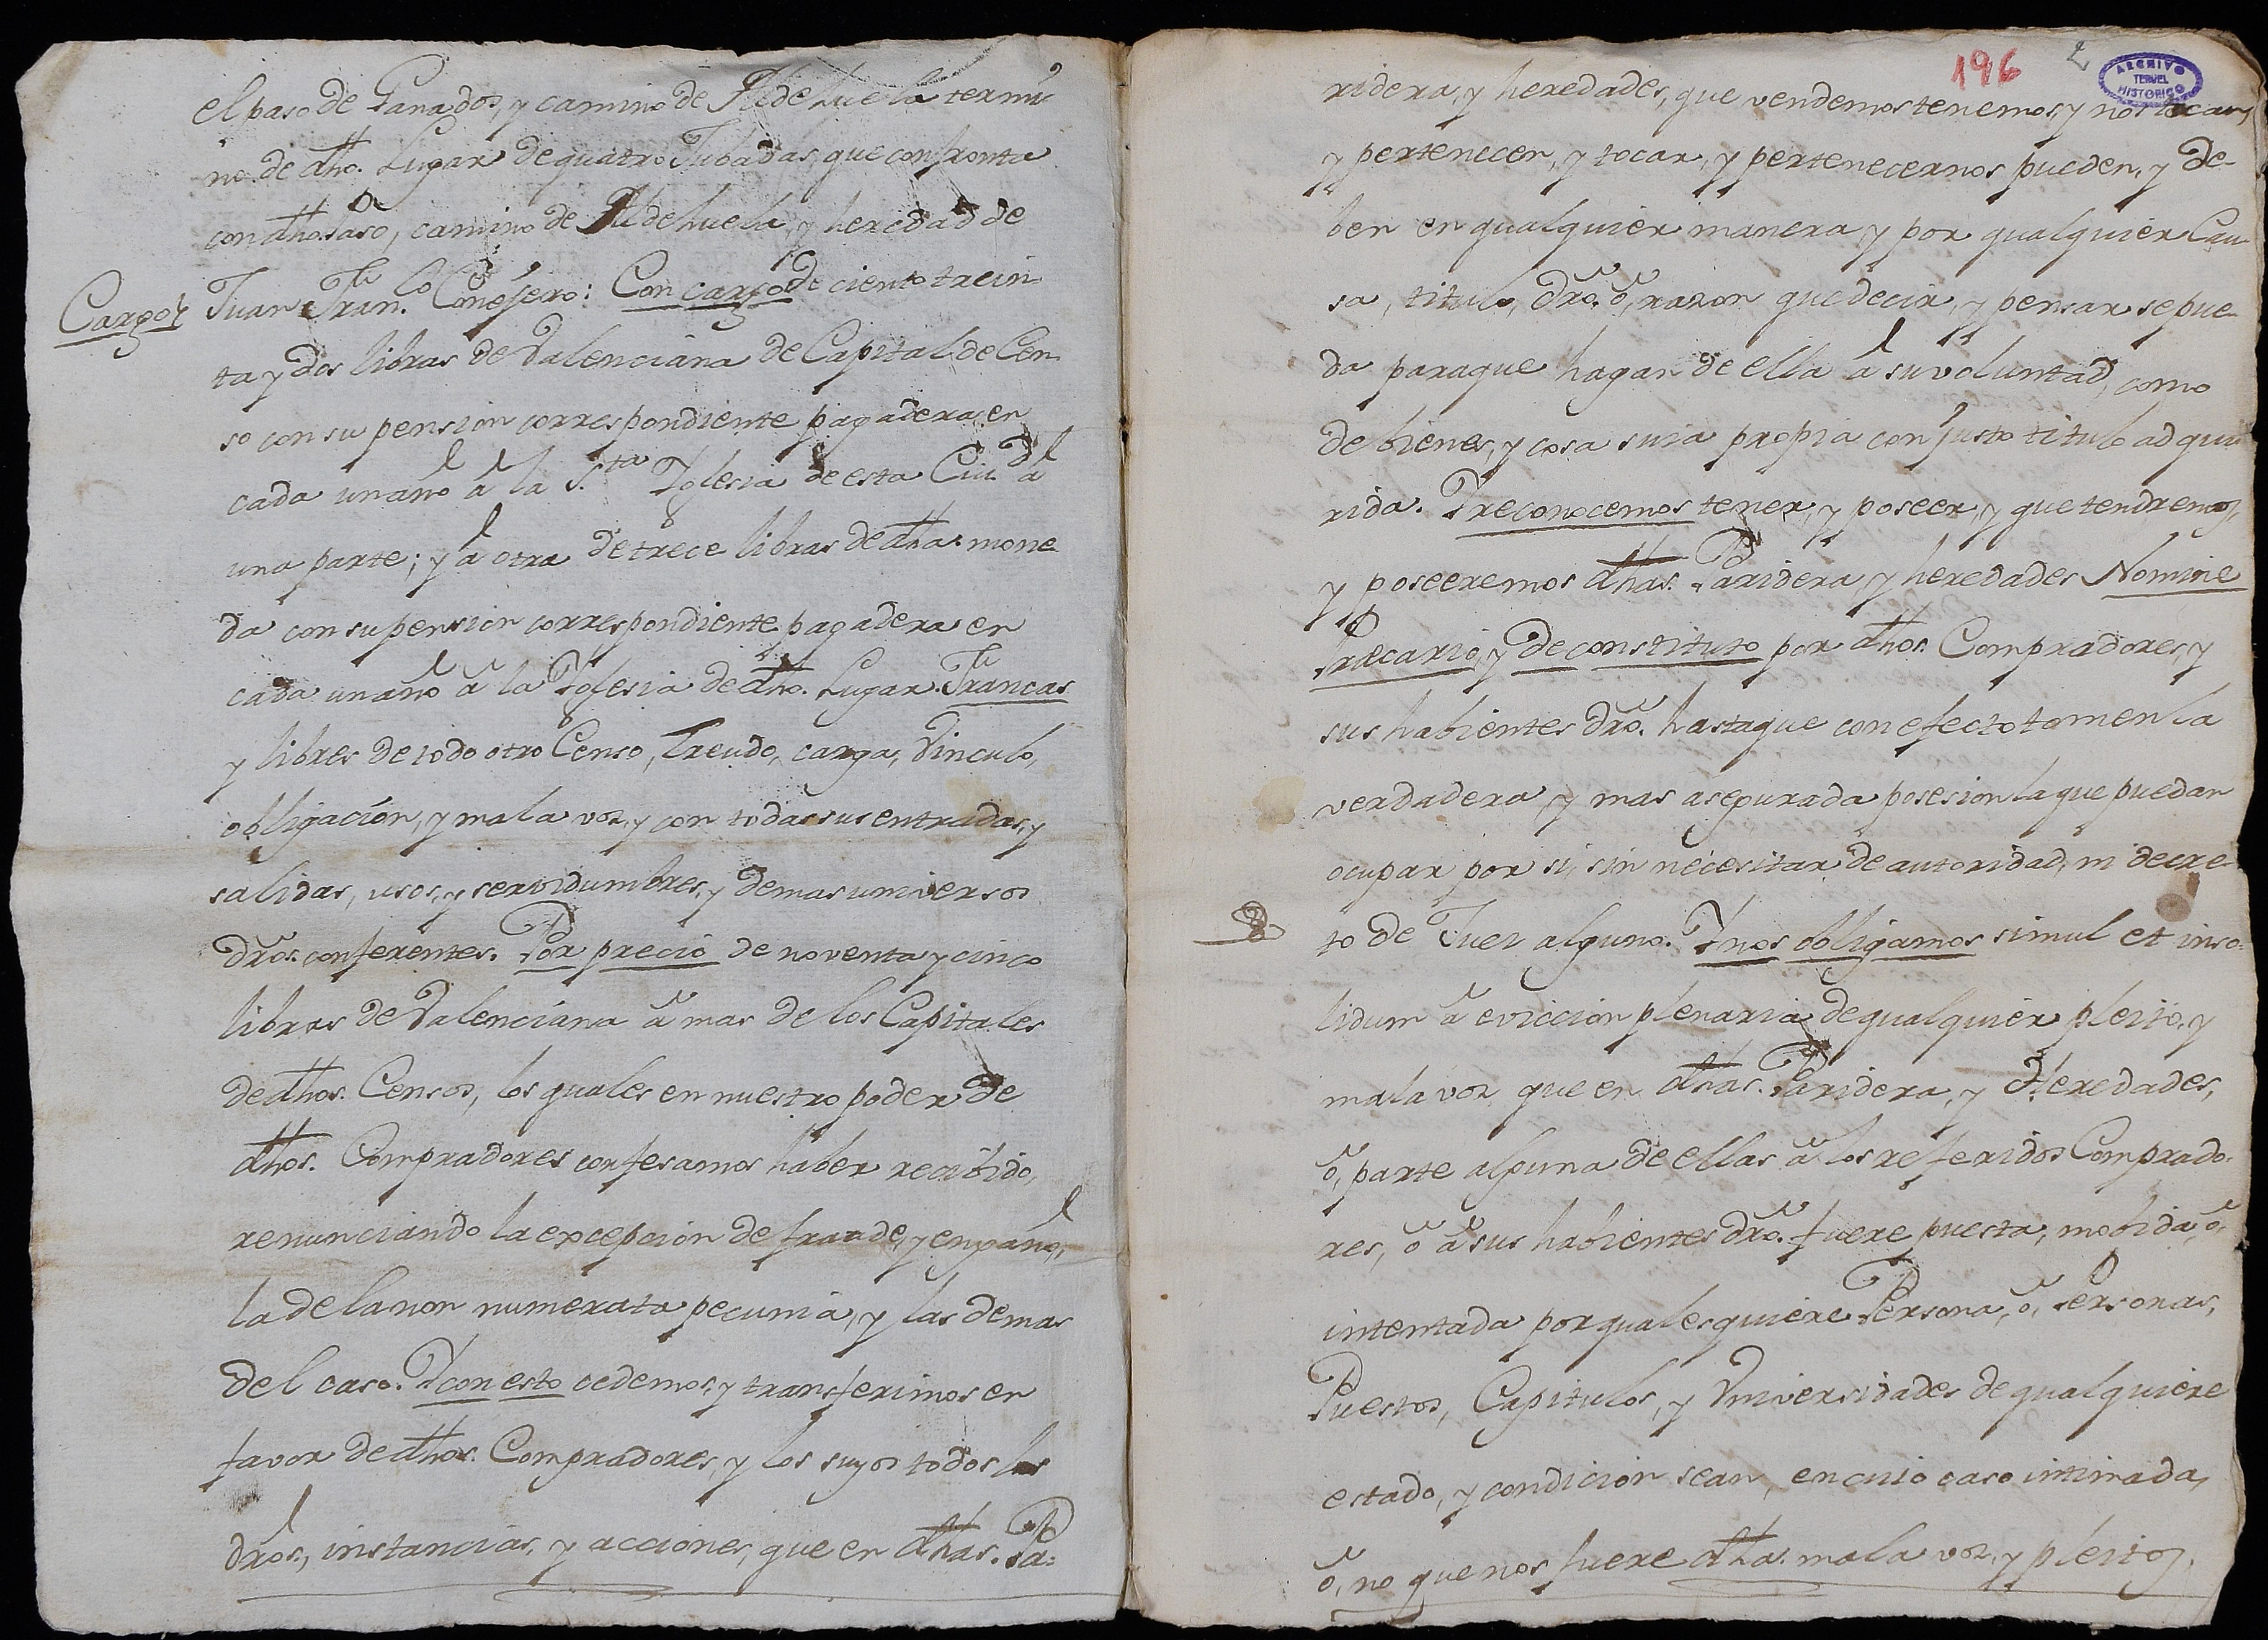 el paso de Ganados, y camino de Aldehuela termi
no de dho. Lugar de quatro Jubadas, que confronta
con dho Paso, camino de Aldehuela, y heredad de
Cargos
Juan Fran.co Conejero: Con cargo de ciento trein-
ta y dos libras de Valenciána de Capital de Cen-
so con su pension correspondiente pagadera en
cada un año á la S.ta Yglesia de esta Ciu.d á
una parte; y á otra de trece libras de dha. mone-
da con su pension correspondiente pagadera en
cada un año á la Yglesia de dho. Lugar. Francas
y libres de todo otro Censo, treudo, carga, Vinculo,
obligación, y mala voz, y con todas sus entradas, y
salidas, usos, y servidumbres, y demas universos
dros. conferentes. Por precio de noventa y cinco
libras de Valenciána á mas de los Capitales
de dhos. Censos, los quales en nuestro poder de
dhos. Compradores confesamos haber recibido,
renunciando la excepcion de fraude, y engaño,
la de la non numerata pecunia, y las demas
del caso. Y con esto cedemos, y transferimos en
favor de dhos. Compradores, y los suyos todos los
dros, instancias, y acciones, que en dhas. Pa-
196 2
ARCHIVO
TERUEL
HISTORICO
ridera, y heredades, que vendemos tenemos, y nos tocan,
y pertenecen, y tocar, y pertenecernos pueden, y de-
ben en qualquier manera y por qualquier Cau-
sa, titulo, dro. ó, razon que decir, y pensar se pue-
da para que hagan de ella á su voluntad, como
de bienes, y cosa suia propia con justo titulo adqui
rida. Y reconocemos tener, y poseer, y que tendremos,
y poseeremos dhas. Paridera, y heredades Nomine
Præcario, y de constituto por dhos. Compradores, y
sus habientes dro. hasta que con efecto tomen la
verdadera, y mas asegurada posesion la que puedan
ocupar por si, sin necesitar de autoridad, ni decre-
to de Juez alguno. Y nos obligamos simul et inso-
lidum á eviccion plenaria de qualquier pleito, y
mala voz que en dhas. Paridera, y Heredades,
ó, parte alguna de ellas á los referidos Comprado-
res, ó á sus habientes dro. fuere puesta, mobida, ó,
intentada por qualesquiere Persona, ó, Personas,
Puestos, Capitulos, y Universidades de qualquiere
estado, y condicion sean, en cuio caso intimada,
ó, no que nos fuere dha. mala voz, y pleitos,